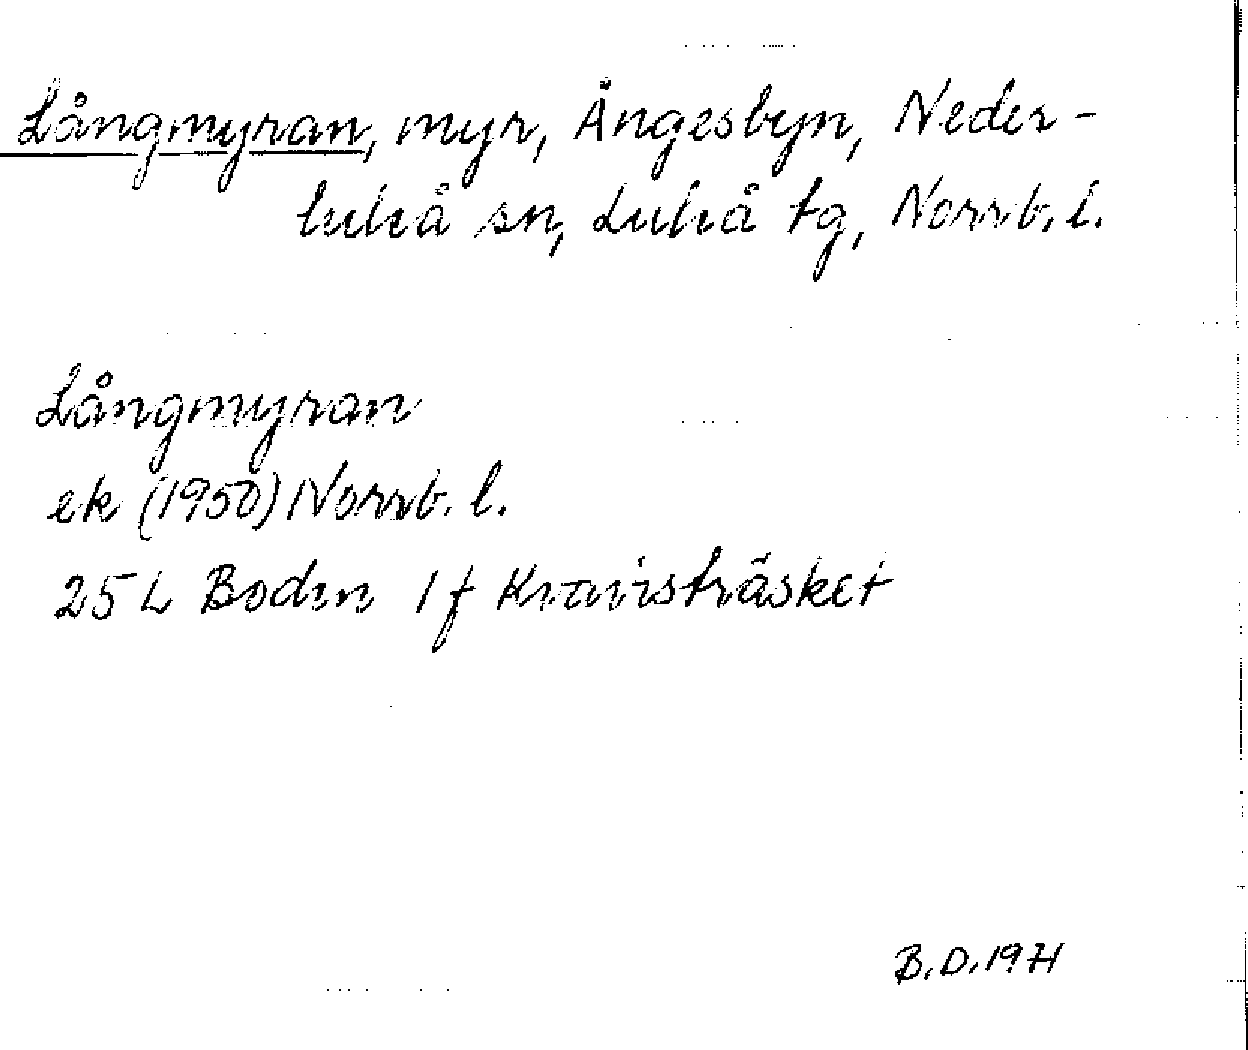 Långmyran, myr, Ängesbyn, Neder-
luleå sn, Luleå tg, Norrb. l.
Långmyran
ek (1950) Norrb. l.
25 L Boden 1 f Kvavisträsket
B.D. 1971